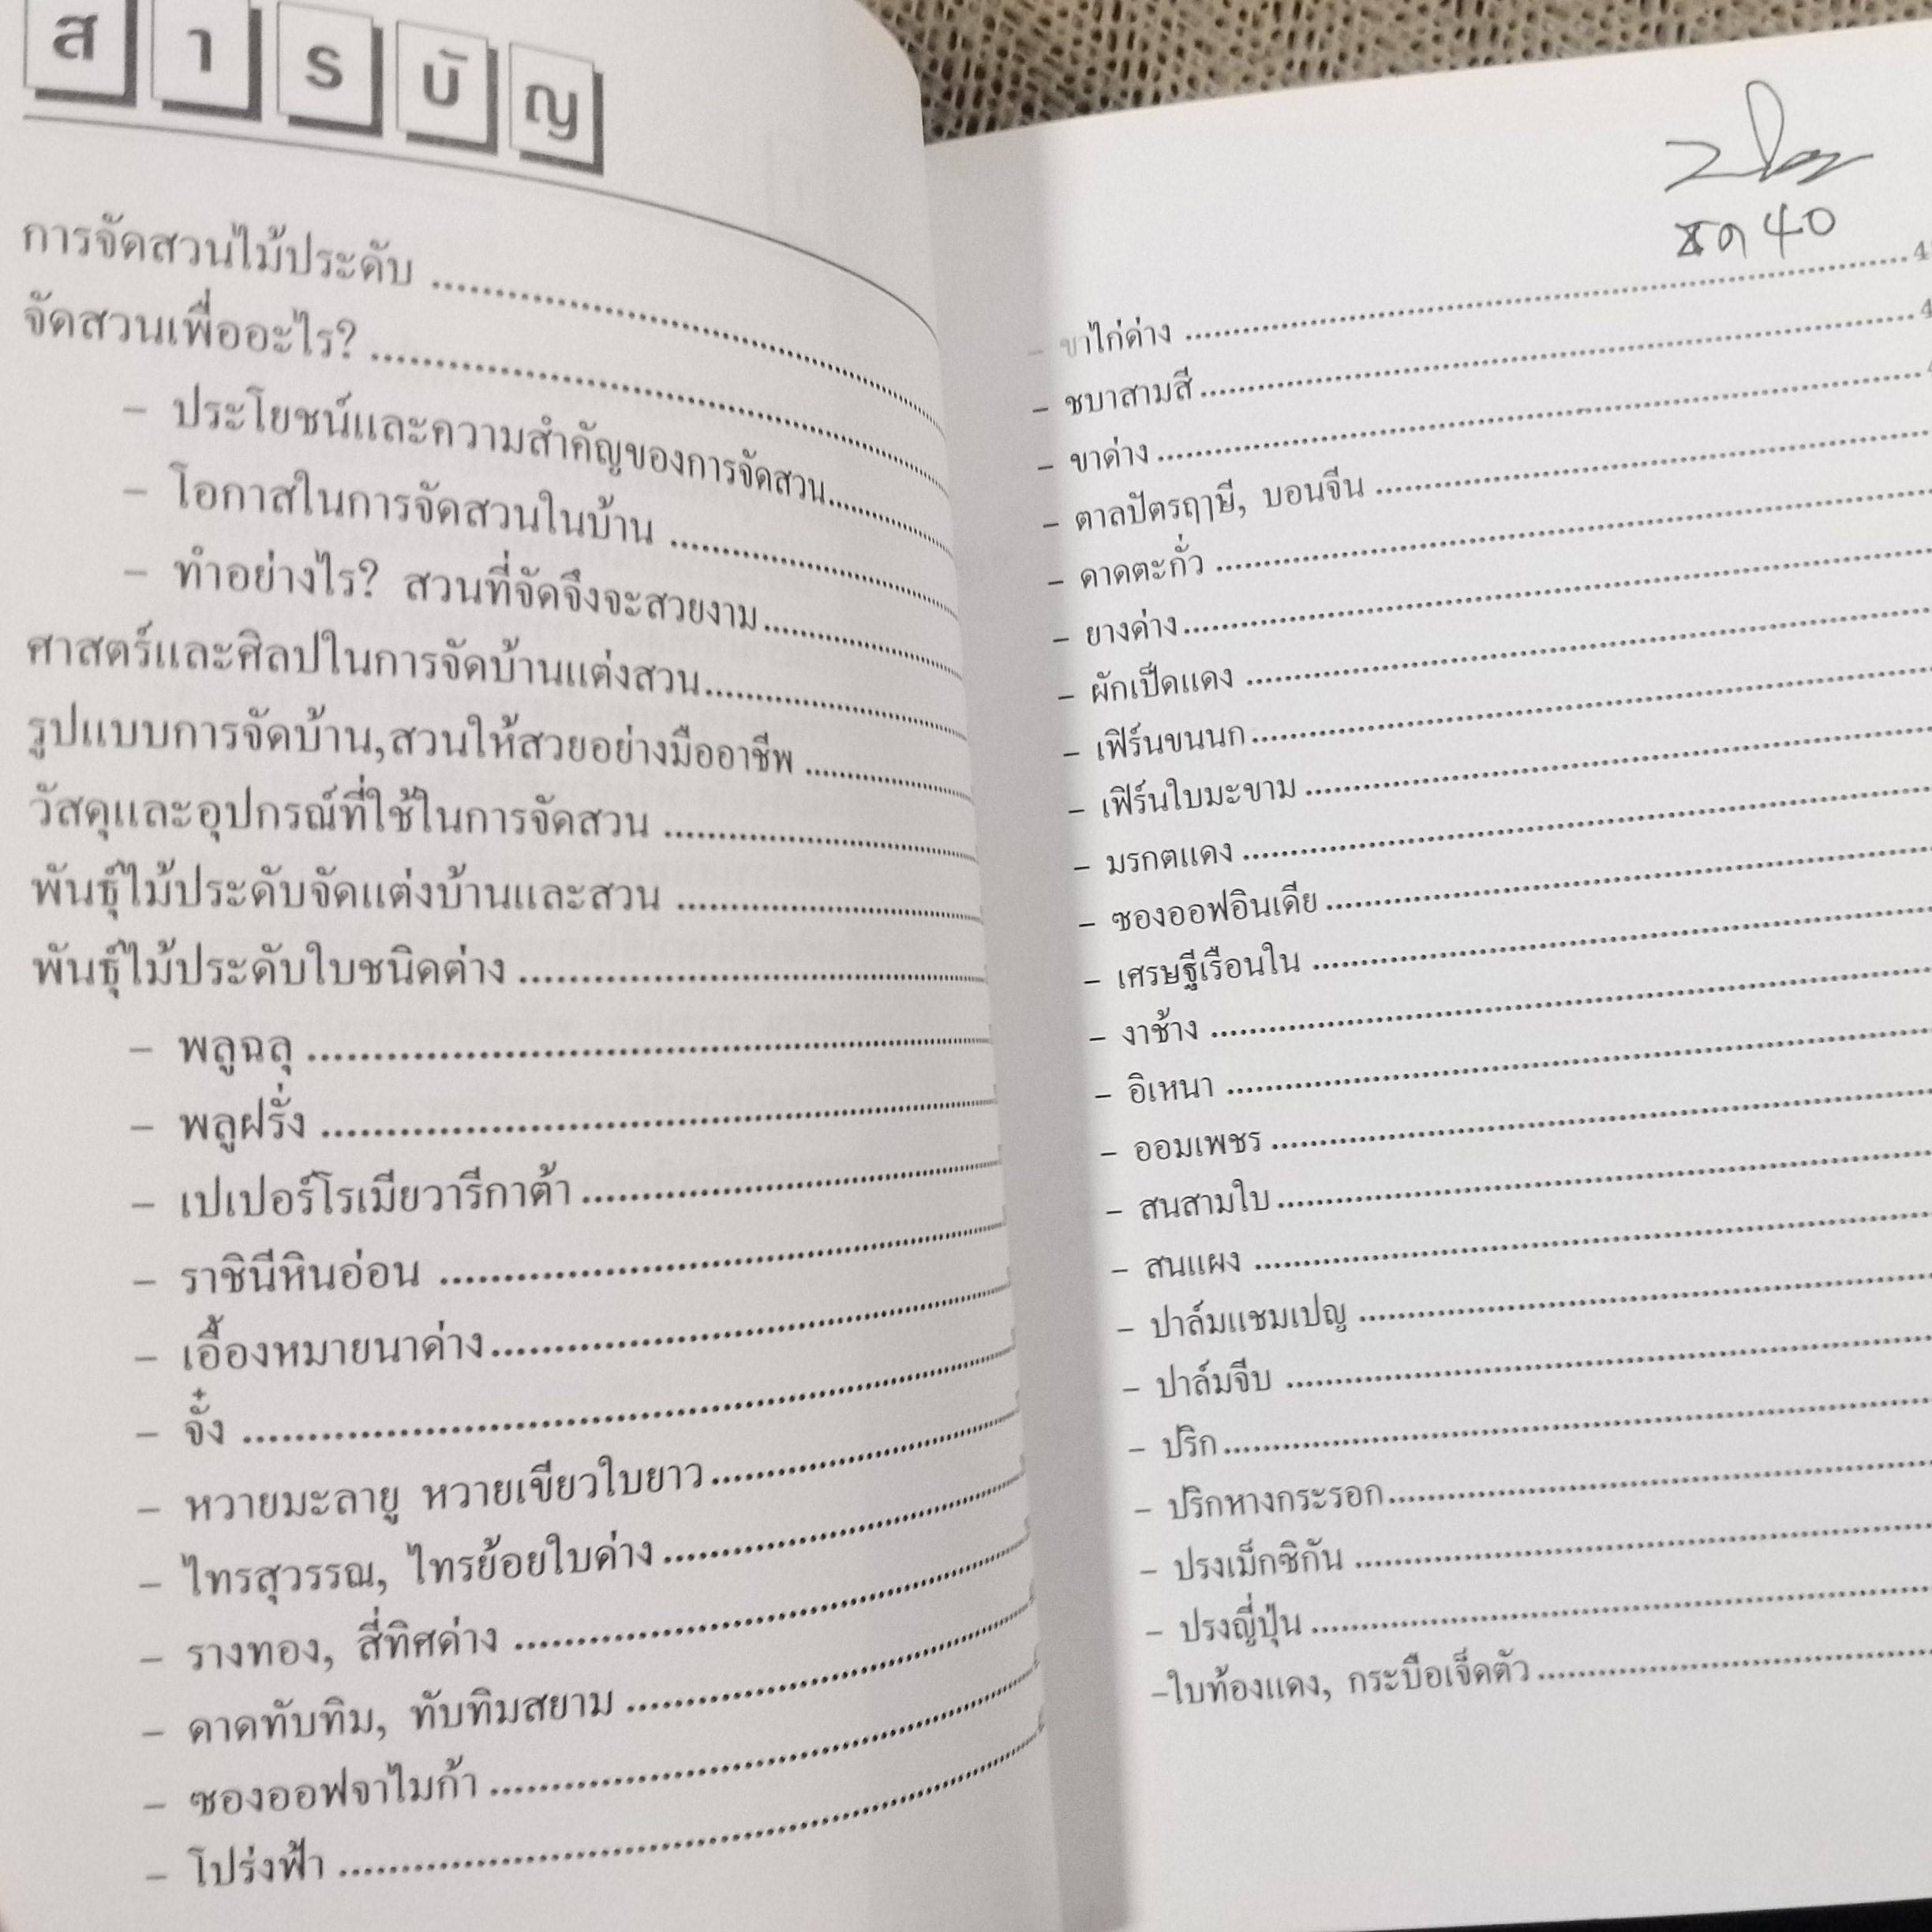 สารบัญ
การจัดสวนไม้ประดับ
จัดสวนเพื่ออะไร?
- ประโยชน์และความสำคัญของการจัดสวน
- โอกาสในการจัดสวนในบ้าน
- ทำอย่างไร? สวนที่จัดจึงจะสวยงาม
ศาสตร์และศิลปในการจัดบ้านแต่งสวน
รูปแบบการจัดบ้าน,สวนให้สวยอย่างมืออาชีพ
วัสดุและอุปกรณ์ที่ใช้ในการจัดสวน
พันธุ์ไม้ประดับจัดแต่งบ้านและสวน
พันธุ์ไม้ประดับใบชนิดต่าง
- พลูฉลุ
- พลูฝรั่ง
- เปเปอร์โรเมียวารีกาต้า
- ราชินีหินอ่อน
- เอื้องหมายนาด่าง
- จั๋ง
- หวายมะลายู หวายเขียวใบยาว
- ไทรสุวรรณ, ไทรย้อยใบด่าง
- รางทอง, สี่ทิศด่าง
- ดาดทับทิม, ทับทิมสยาม
- ซองออฟจาไมก้า
- โปร่งฟ้า
40
- ขาไก่ด่าง
- ชบาสามสี
- ขาด่าง
- ตาลปัตรฤาษี, บอนจีน
- ดาดตะกั่ว
- ยางด่าง
- ผักเป็ดแดง
- เฟิร์นขนนก
- เฟิร์นใบมะขาม
- มรกตแดง
- ซองออฟอินเดีย
- เศรษฐีเรือนใน
- งาช้าง
- อิเหนา
- ออมเพชร
- สนสามใบ
- สนแผง
- ปาล์มแชมเปญ
- ปาล์มจีบ
- ปริก
- ปริกหางกระรอก
- ปรงเม็กซิกัน
- ปรงญี่ปุ่น
-ใบท้องแดง, กระบือเจ็ดตัว